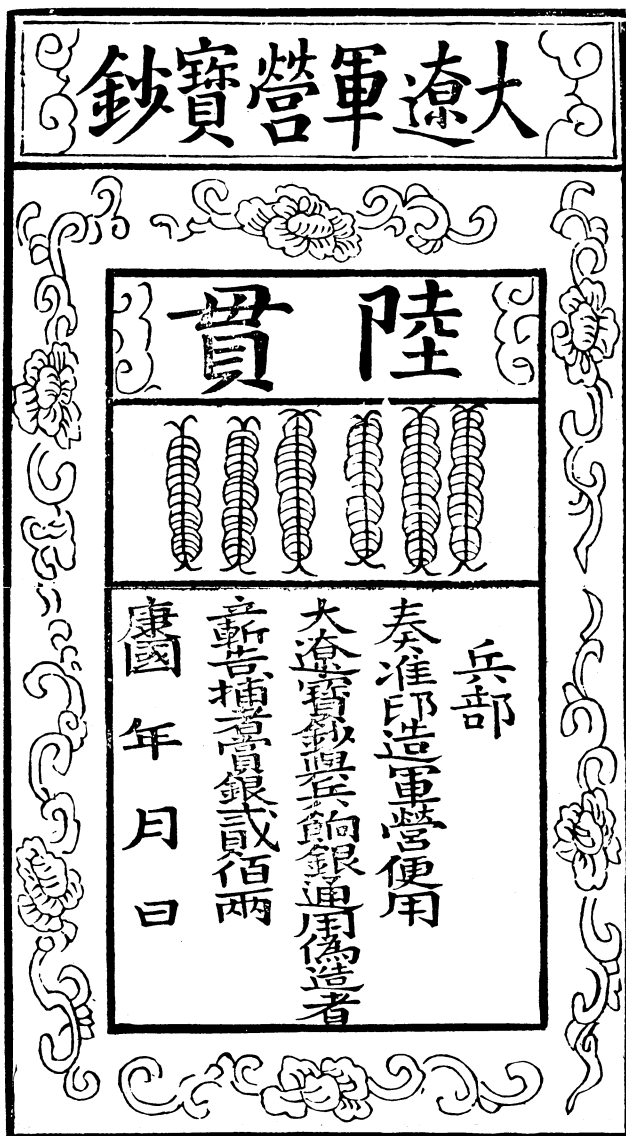 大遼軍營寶鈔
陸貫
兵部
奏准印造軍營便用
大遼寶鈔與兵餉銀通用偽造者
斬告捕者賞銀貳佰兩
康國 年 月 日